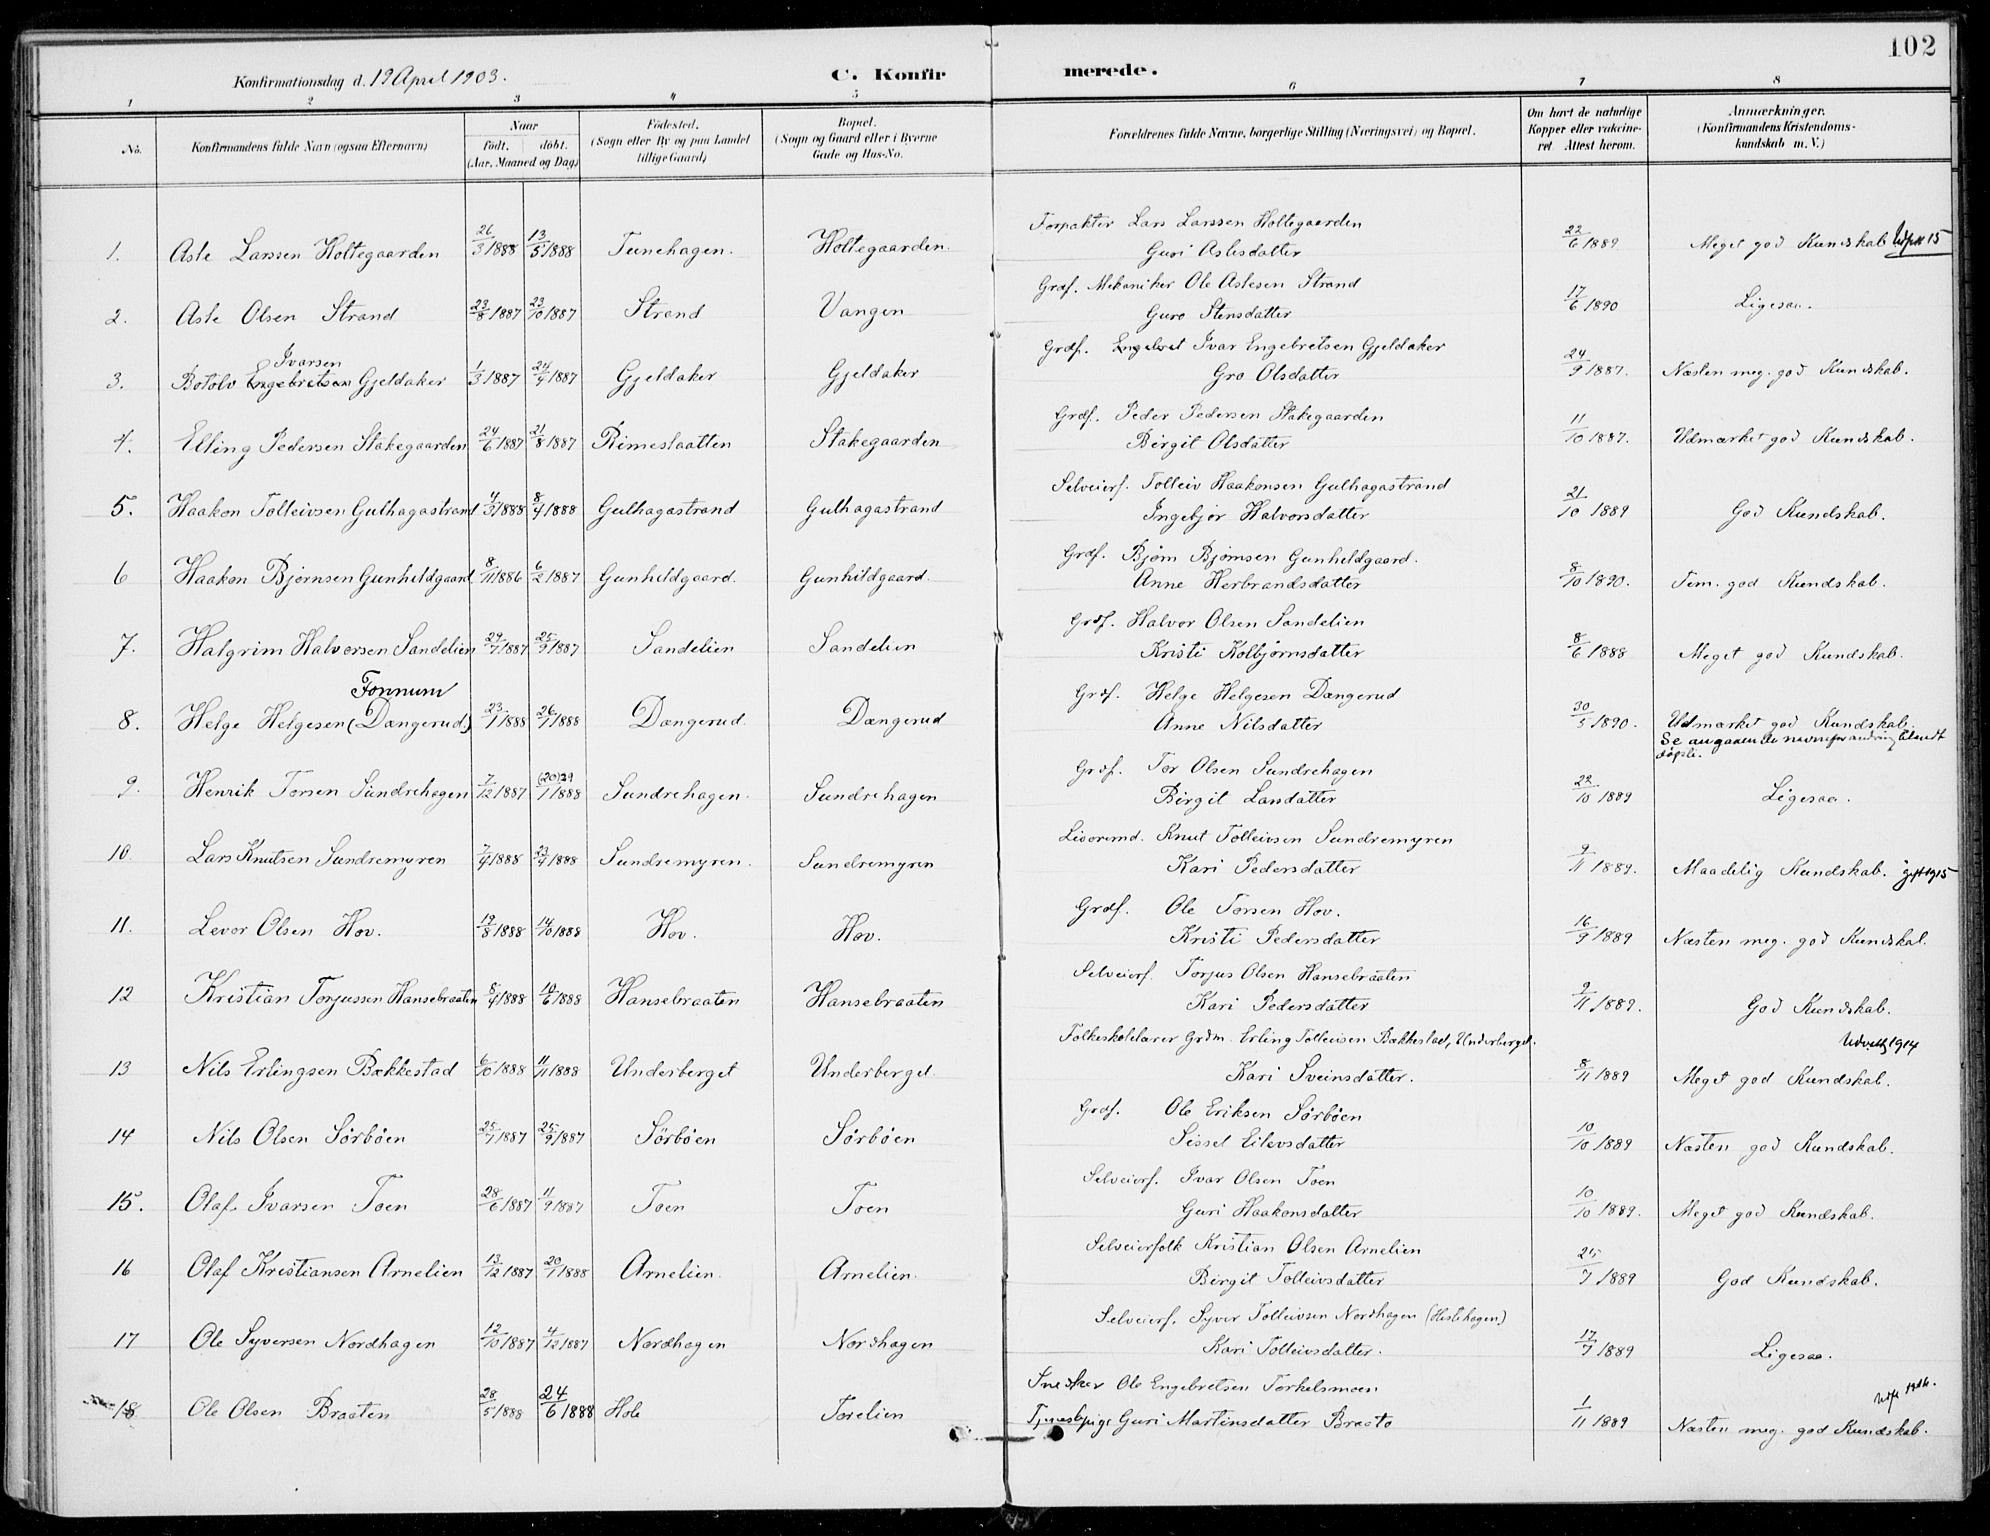 102
Konfirmationsdag d. 19 April 1903.
C. Konfir merede.
1 2 3 4 5 6 7 8
No. Konfirmandens fulde Navn (ogsaa Efternavn) Naar født. døbt. (Aar, Maaned og Dag) Fødested. (Sogn eller By og paa Landet tillige Gaard) Bopæl. (Sogn og Gaard eller i Byerne Gade og Hus-No. Forældrenes fulde Navne, borgerlige Stilling (Næringsvei) og Bopæl. Om havt de naturlige Kopper eller vakcineret. Attest herom. Anmærkninger. (Konfirmandens Kristendomskundskab m. V.)
Forpakter Lars Larssen Holtegaarden
1. Asle Larssen Holtegaarden 26/3 1888 13/5 1888 Tunehagen. Holtegaarden. Guri Aslesdatter 22/6 1889 Meget god Kundskab
Grdf. Mekaniker Ole Aslesen Strand
2. Asle Olsen Strand 23/8 1887 23/10 1887 Strand Vangen Guro Stensdatter 17/6 1890 Ligesaa.
Ivarsen Grdf. Engebret Ivar Engebretsen Gjeldaker
3. Botolv Engebretsen Gjeldaker 1/3 1887 24/4 1887 Gjeldaker Gjeldaker Gro Olsdatter 24/9 1887. Næsten meg. god Kundskab.
Grdf. Peder Pedersen Stakegaarden
4. Elling Pedersen Stakegaarden 24/6 1887 21/8 1887 Rimeslaatten Stakegaarden Birgit Olsdatter 11/10 1887. Udmærket god Kundskab.
Selveierf. Tolleiv Haakonsen Gulhagastrand
5. Haakon Tolleivsen Gulhagastrand 4/3 1888 8/4 1888 Gulhagastrand Gulhagastrand Ingebjør Halvorsdatter 21/10 1889 God Kundskab.
Grdf. Bjørn Bjørnsen Gunhildgaard.
6 Haakon Bjørnsen Gunhildgaard 8/11 1886 6/2 1887 Gunhildgaard. Gunhildgaard. Anne Herbrandsdatter 8/10 1890. Tem. god Kundskab.
Grdf. Halvor Olsen Sandelien
7. Halgrim Halvorsen Sandelien 29/7 1887 25/9 1887 Sandelien Sandelien Kristi Kolbjørnsdatter 8/6 1888 Meget god Kundskab.
Fonnum Grdf. Helge Helgesen Dængerud
8. Helge Helgesen (Dængerud) 23/1 1888 26/1 1888 Dængerud. Dængerud Anne Nilsdatter 30/5 1890. Udmærket god Kundskab.
Se angaaende navneforandring blandt
døpte.
Grdf. Tor Olsen Sundrehagen
9. Henrik Torsen Sundrehagen 7/12 1887 (20) 29/1 1888 Sundrehagen. Sundrehagen Birgit Larsdatter 22/10 1889 Ligesaa.
Livøremd. Knut Tolleivsen Sundremyren
10. Lars Knutsen Sundremyren 7/4 1888 23/4 1888 Sundremyren. Sundremyren Kari Pedersdatter 9/11 1889. Maadelig Kundskab. gift 1915
Grdf. Ole Torsen Hov.
11. Levor Olsen Hov. 19/8 1888 14/10 1888 Hov. Hov. Kristi Pedersdatter 16/9 1889 Næsten meg. god Kundskab.
Selveierf. Torjus Olsen Hansebraaten
12 Kristian Torjussen Hansebraaten 8/4 1888 10/6 1888 Hansebraaten Hansebraaten Kari Pedersdatter 9/11 1889. God Kundskab.
Folkeskolelærer Grdm. Erling Tolleivsen Bækkestad, Underberget. 1914
13 Nils Erlingsen Bækkestad 6/10 1888 11/11 1888 Underberget Underberget. Kari Sveinsdatter. 8/11 1889 Meget god Kundskab.
Grdf. Ole Eriksen Sørbøen
14 Nils Olsen Sørbøen 25/7 1887 25/9 1887 Sørbøen Sørbøen Sissel Eilevsdatter 10/10 1889 Næsten god Kundskab.
Selveierf. Ivar Olsen Toen
15. Olaf Ivarsen Toen 28/6 1887 11/9 1887 Toen Toen Guri Haakonsdatter 10/10 1889. Meget god Kundskab.
Selveierfolk Kristian Olsen Arnelien
16 Olaf Kristiansen Arnelien 13/12 1887 20/1 1888 Arnelien. Arnelien. Birgit Tolleivsdatter 25/7 1889 God Kundskab.
Selveierf. Syver Tolleivsen Nordhagen (Hestehagen)
17 Ole Syversen Nordhagen 12/10 1887 4/12 1887 Nordhagen Nordhagen Kari Tolleivsdatter. 17/7 1889 Ligesaa.
Snedker Ole Engebretsen Torkelsmoen
18 Ole Olsen Braaten 28/5 1888 24/6 1888 Hole Torelien Tjenestpige Guri Martinsdatter Braato 1/11 1889 Næsten meg. god Kundskab.